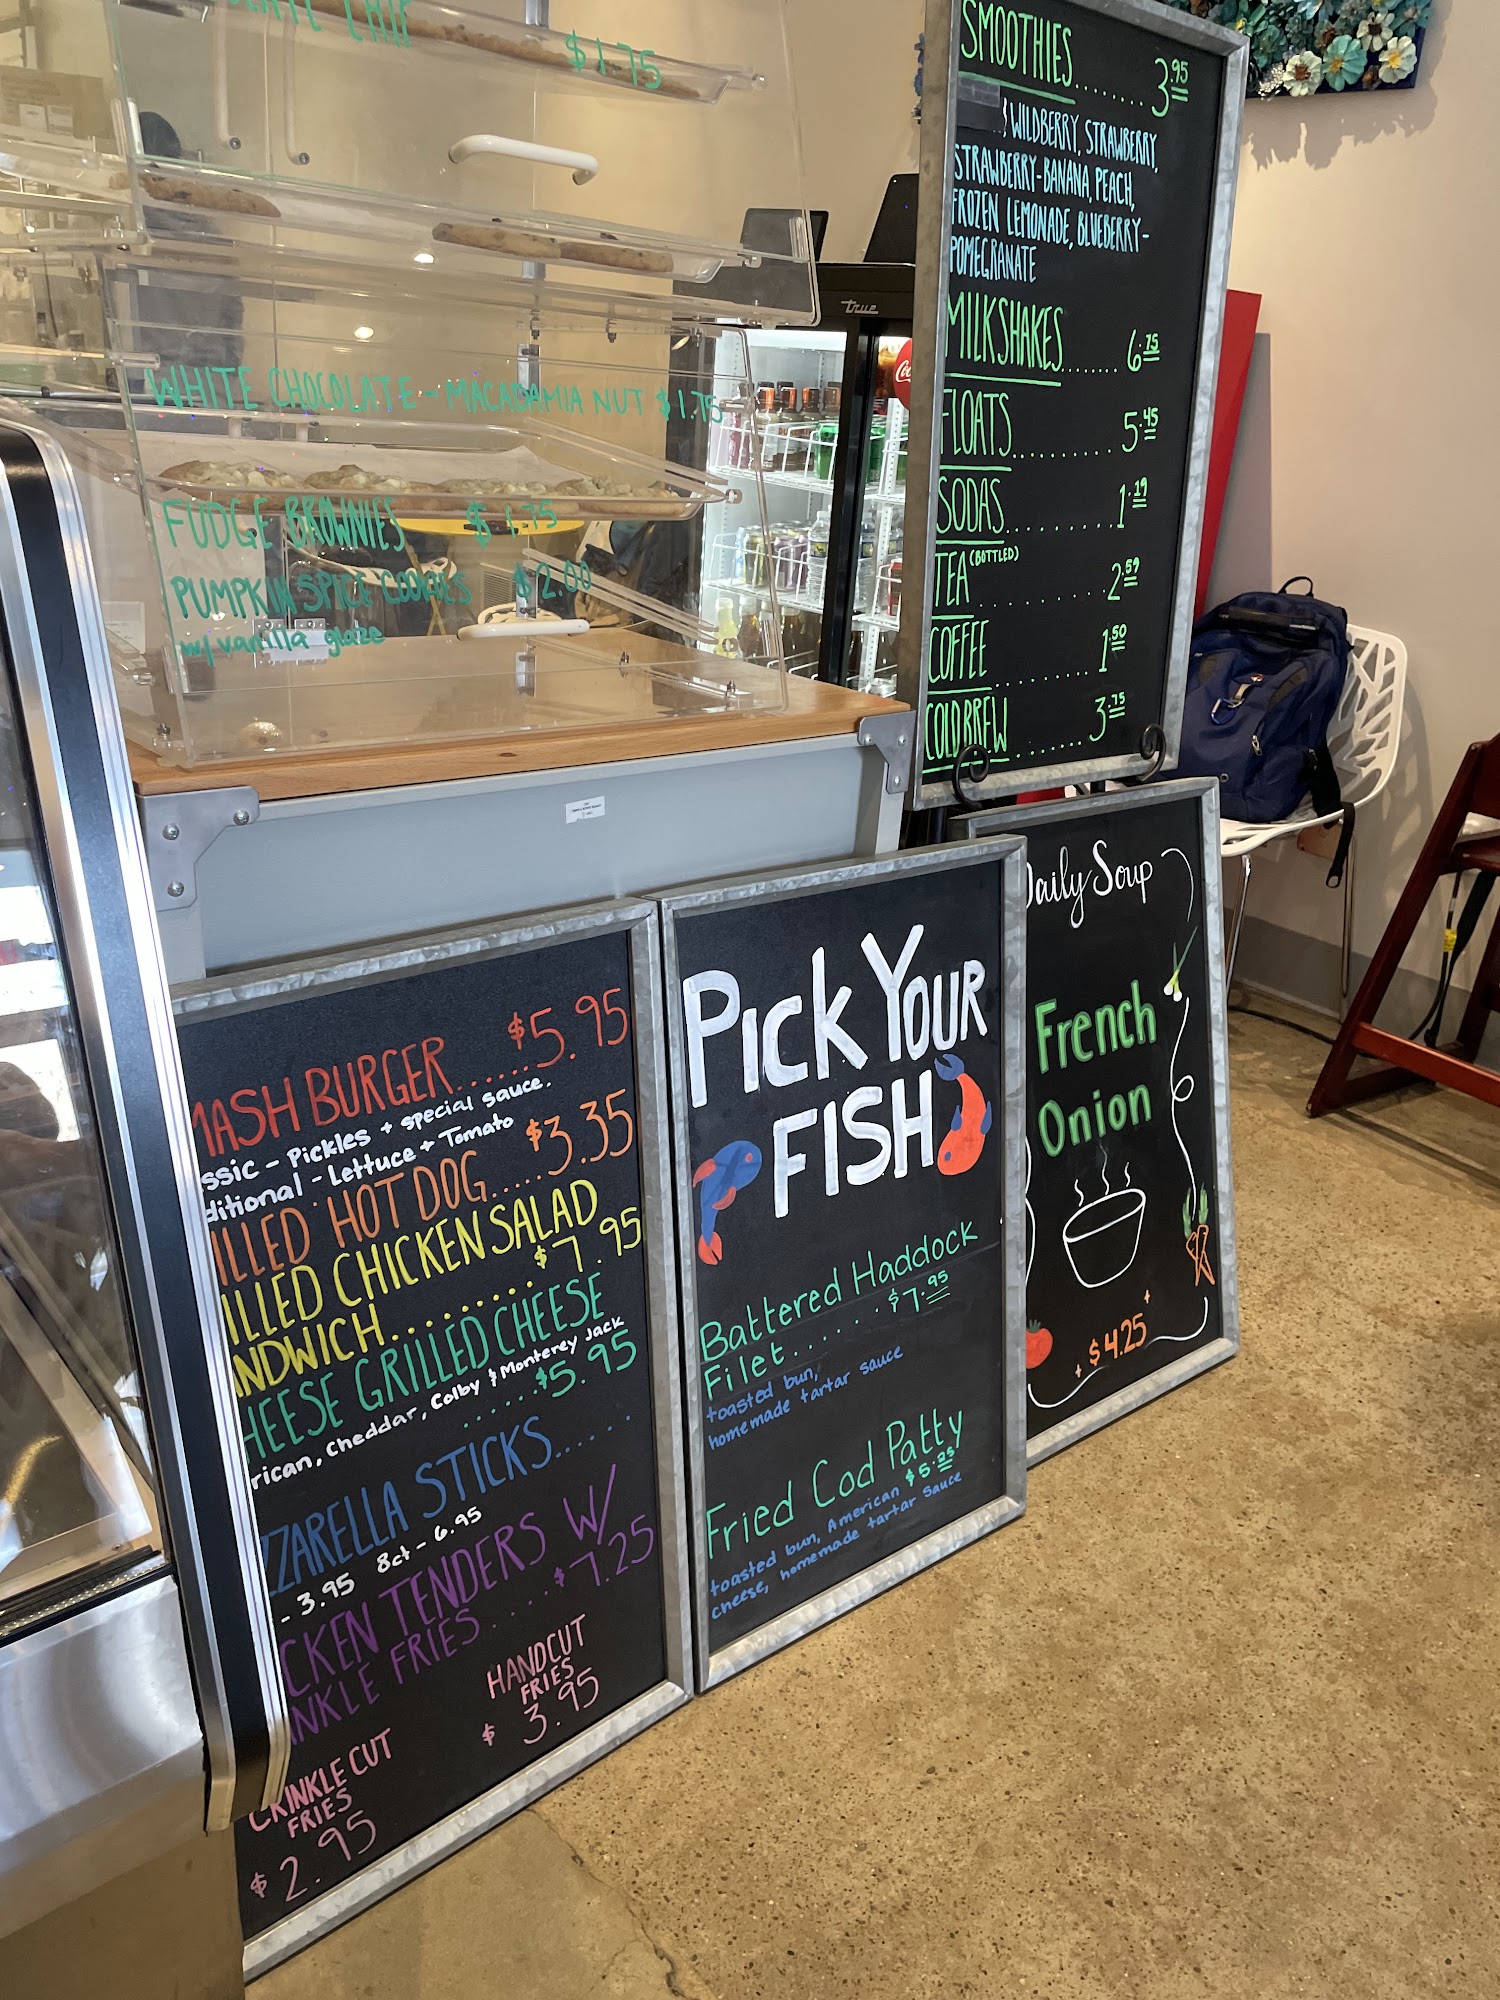 CHIP
$1.75
WHITE CHOCOLATE - MACADAMIA NUT $1.75
FUDGE BROWNIES $1.75
PUMPKIN SPICE COOKIES $2.00
w/ vanilla glaze
true
SMOOTHIES........ 3.95
WILDBERRY, STRAWBERRY,
STRAWBERRY-BANANA, PEACH,
FROZEN LEMONADE, BLUEBERRY-
POMEGRANATE
MILKSHAKES....... 6.75
FLOATS.......... 5.45
SODAS.......... 1.19
TEA (BOTTLED)............ 2.59
COFFEE.......... 1.50
COLD BREW....... 3.75
MASH BURGER...... $5.95
ssic - Pickles + special sauce.
ditional - Lettuce + Tomato
ILLED HOT DOG..... $3.35
ILLED CHICKEN SALAD
NDWICH......... $7.95
HEESE GRILLED CHEESE
rican, Cheddar, Colby & Monterey Jack
......$5.95
ZZARELLA STICKS.....
- 3.95 8ct - 6.95
CKEN TENDERS W/
NKLE FRIES.....$7.25
HANDCUT
FRIES
$ 3.95
CRINKLE CUT
FRIES
$2.95
PICK YOUR
FISH
Battered Haddock
Filet..... $7.95
toasted bun,
homemade tartar sauce
Fried Cod Patty
$5.25
toasted bun, American
cheese, homemade tartar sauce
Daily Soup
French
Onion
$4.25